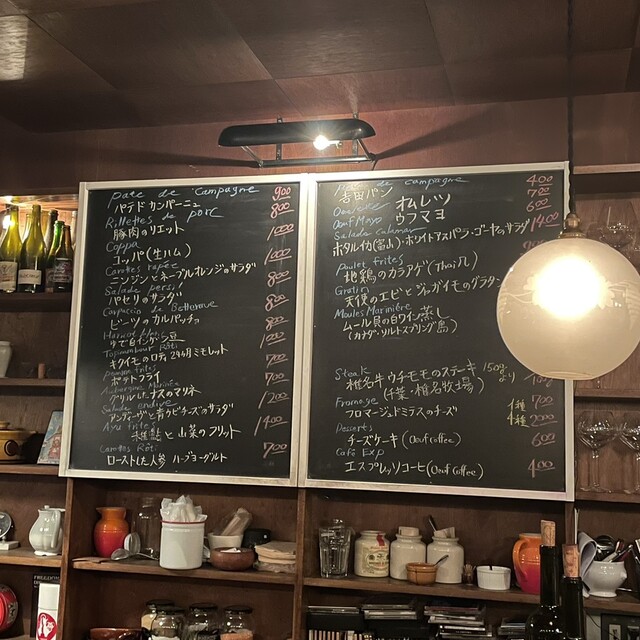 Pate de Campagne 900
パテドカンパーニュ
Rillettes de porc 800
豚肉のリエット
Coppa 1000
コッパ(生ハム)
Carottes rapée 1000
オレンジのサラダ
Salade persil 800
パセリのサラダ
Carpaccio de Betterave 800
ビーツのカルパッチョ
800
ゆで白いんげん豆
Topinambour Rôti 1000
キクイモのロティ 24ヶ月ミモレット
Pomme frites 700
ポテトフライ
700
グリルナスのマリネ
Salade 1200
と青カビチーズのサラダ
Ayu frites 1400
稚鮎と山菜のフリット
Carottes Rôti 700
ローストした人参 ハーブヨーグルト
de campagne 400
吉田パン 700
オムレツ 600
Oeuf Mayo ウフマヨ
Salade calamar 1400
ホタルイカ(富山)・ホワイトアスパラ・ゴーヤのサラダ
Poulet frites
地鶏のカラアゲ(Thai風)
Gratin
天使のエビとジャガイモのグラタン
Moules Marinière
ムール貝の白ワイン蒸し
(カナダ・ソルトスプリング島)
Steak
椎名牛ウチモモのステーキ 150gより
(千葉・椎名牧場)
Fromage 1種 700
フロマージュドミラスのチーズ 4種 2000
Desserts
チーズケーキ(Oeuf coffee) 600
Café Exp
エスプレッソコーヒ(Oeuf coffee) 400